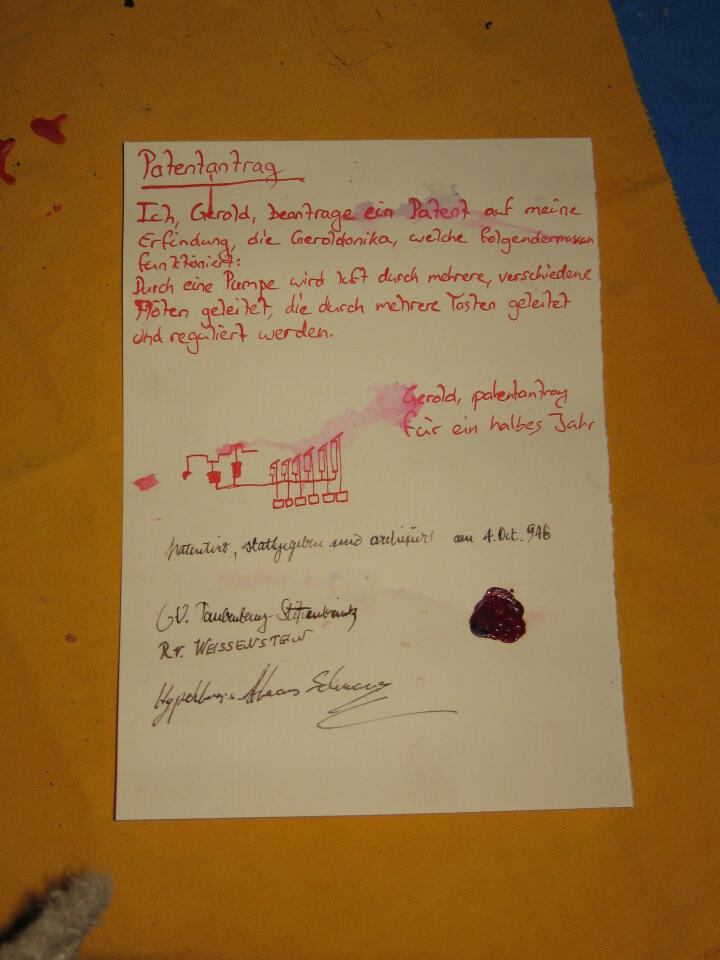 Patentantrag
Ich, Gerold, beantrage ein Patent auf meine
Erfindung, die Geroldonika, welche folgendermassen
funktioniert:
Durch eine Pumpe wird luft durch mehrere, verschiedene
Flöten geleitet, die durch mehrere Tasten geleitet
und reguliert werden.
Gerold, patentantrag
für ein halbes Jahr
patentiert, stattgegeben und archiviert am 4. Oct. 946
GV.
R v. WEISSENSTEIN